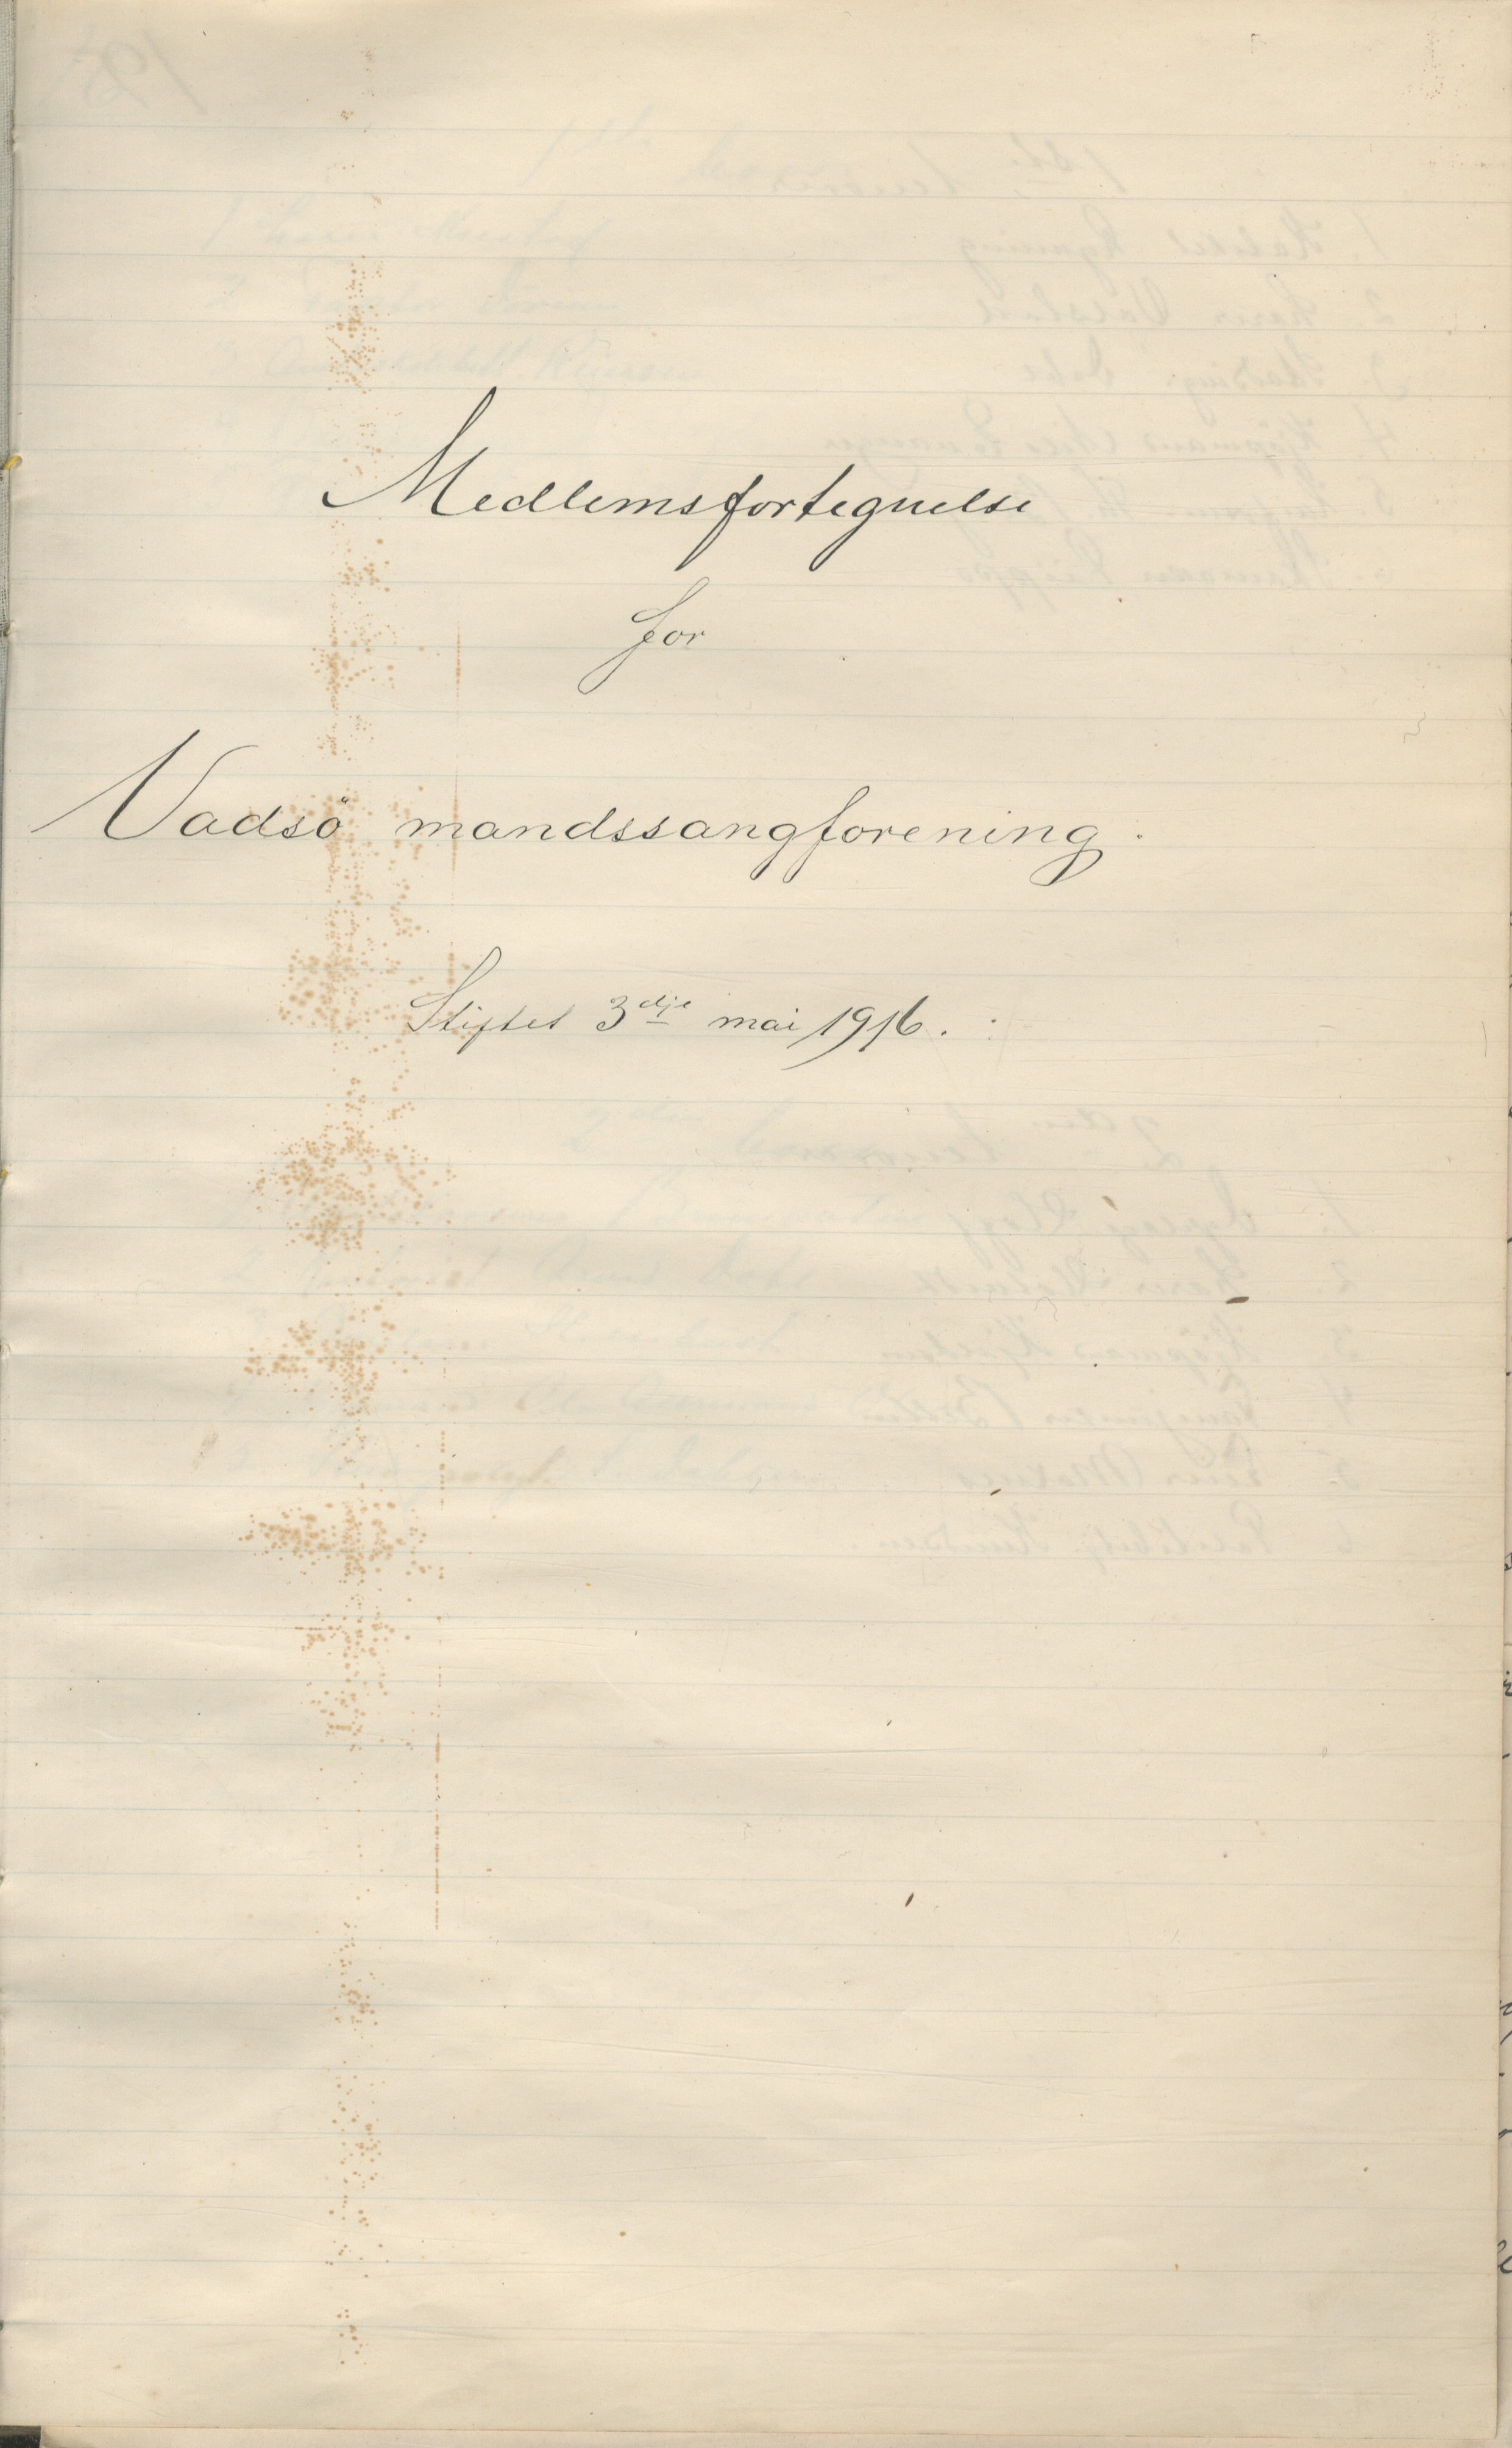 Medlemsfortegnelse
for
Vadsö mandssangforening.
Stiftet 3dje mai 1916.